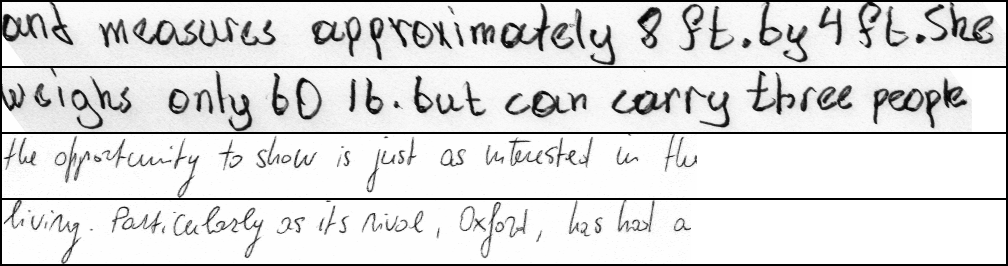 and measures approximately 8 ft. by 4 ft. She
weighs only 60 lb. but can carry three people
the opportunity to show is just as interested in the
living. Particularly as its rival, Oxford, has had a